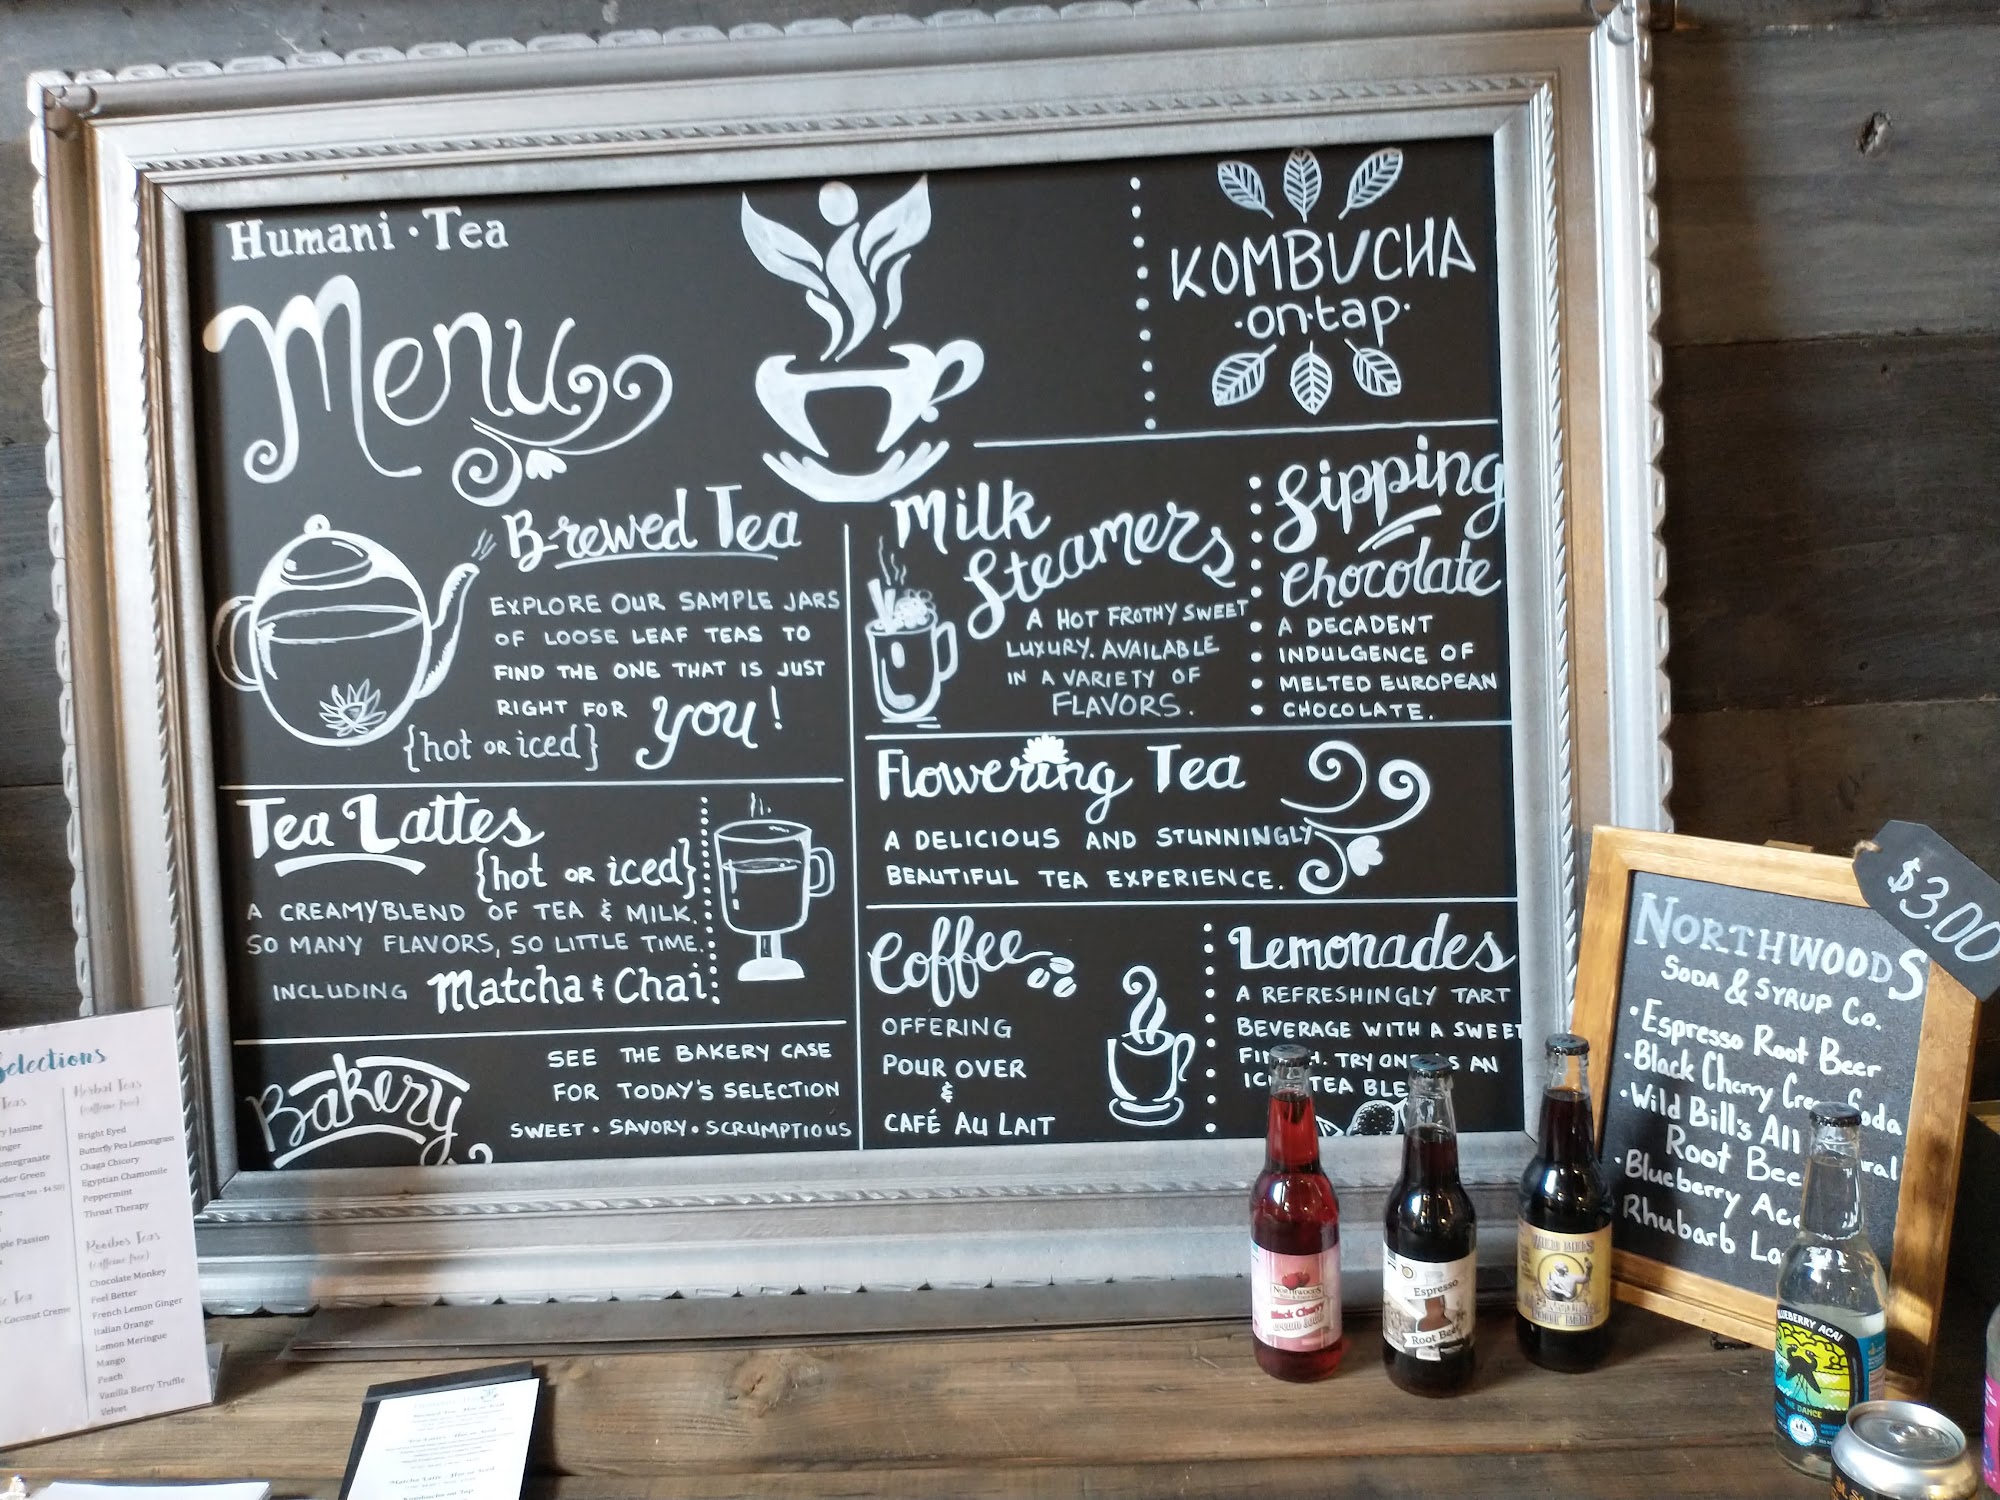 Humani · Tea
Menu
KOMBUCHA
·on·tap·
Brewed Tea
EXPLORE OUR SAMPLE JARS
OF LOOSE LEAF TEAS TO
FIND THE ONE THAT IS JUST
RIGHT FOR you!
{hot OR iced}
Milk
Steamers
A HOT FROTHY SWEET
LUXURY. AVAILABLE
IN A VARIETY OF
FLAVORS.
Sipping
Chocolate
A DECADENT
INDULGENCE OF
MELTED EUROPEAN
CHOCOLATE.
Tea Lattes
{hot OR iced}
A CREAMY BLEND OF TEA & MILK.
SO MANY FLAVORS, SO LITTLE TIME.
INCLUDING Matcha & Chai.
Flowering Tea
A DELICIOUS AND STUNNINGLY
BEAUTIFUL TEA EXPERIENCE.
Bakery
SEE THE BAKERY CASE
FOR TODAY'S SELECTION
SWEET · SAVORY · SCRUMPTIOUS
Coffee
OFFERING
POUR OVER
&
CAFÉ AU LAIT
Lemonades
A REFRESHINGLY TART
BEVERAGE WITH A SWEET
TRY AN
TEA
$3.00
NORTHWOODS
SODA & SYRUP CO.
· Espresso Root Beer
· Black Cherry Soda
· Wild Bill's All
Root
· Blueberry
Rhubarb
Selections
Teas
Jasmine
Green
Passion
Tea
Coconut Creme
Herbal Teas
(caffeine free)
Bright Eyed
Butterfly Pea Lemongrass
Chaga Chicory
Egyptian Chamomile
Peppermint
Throat Therapy
Rooibos Teas
(caffeine free)
Chocolate Monkey
Feel Better
French Lemon Ginger
Italian Orange
Lemon Meringue
Mango
Peach
Vanilla Berry Truffle
Velvet
Matcha Latte - Hot or Iced
Kombucha on Tap
NORTHWOODS
Black Cherry
cream soda
Espresso
Root Beer
BLUEBERRY ACAI
THE DANCE